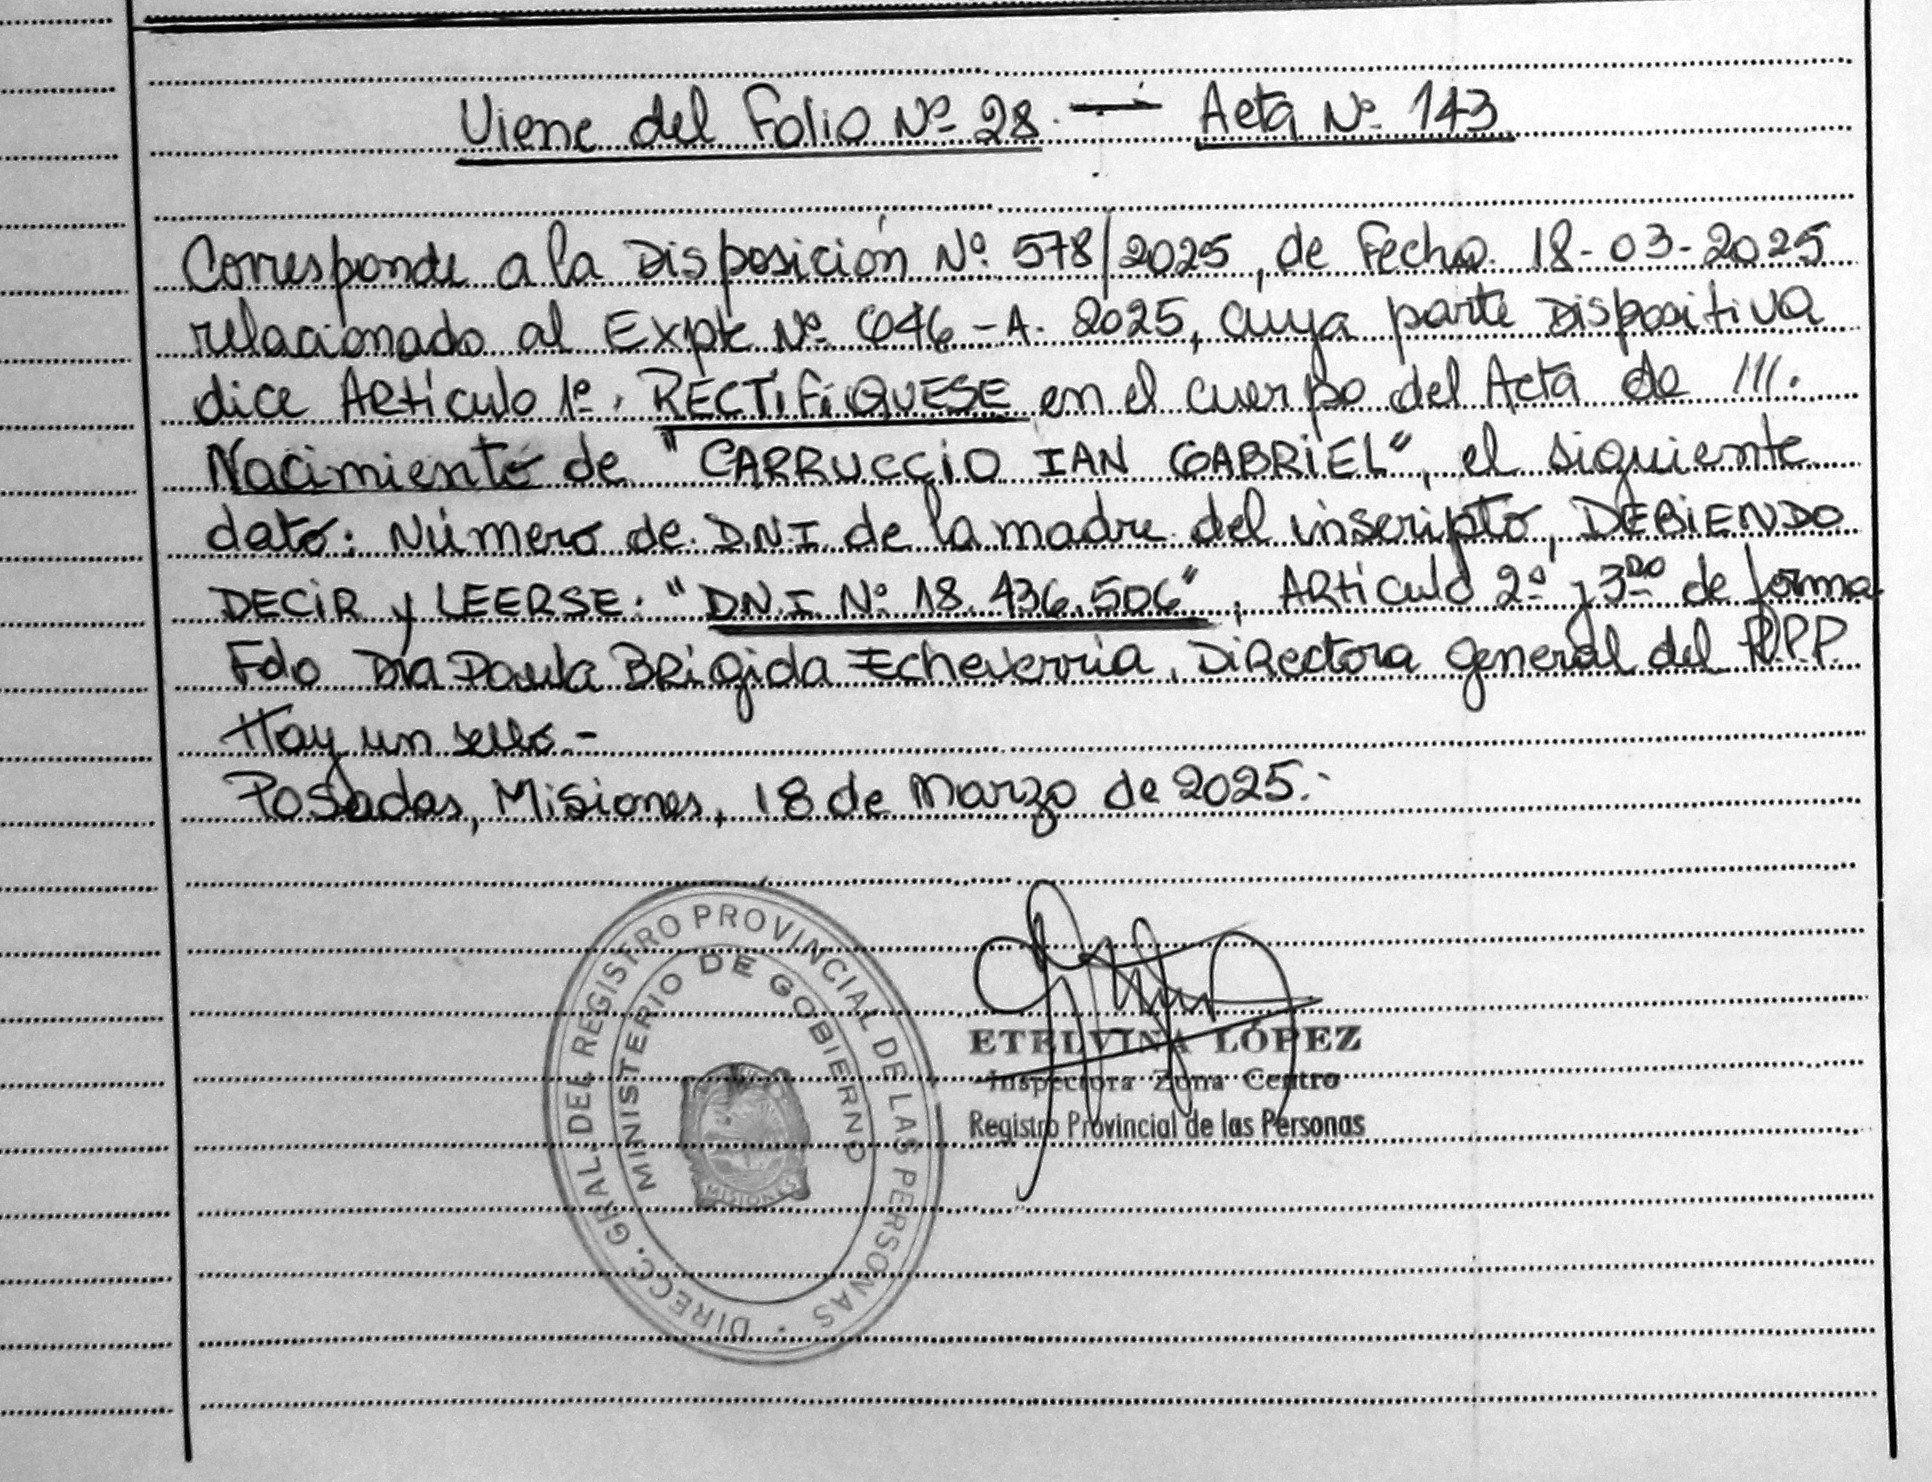 Viene del Folio Nº 28. — Acta Nº 143
Corresponde a la Disposición Nº 578/2025, de Fecha 18-03-2025
relacionado al Expte Nº 646-A-2025, cuya parte Dispositiva
dice Artículo 1º. RECTIFIQUESE en el cuerpo del Acta de ///.
Nacimiento de "CARRUCCIO IAN GABRIEL", el siguiente
dato: Número de D.N.I de la madre del inscripto, DEBIENDO
DECIR y LEERSE: "DN.I Nº 18.436.506", ARticulo 2º y 3ro de forma
Fdo Dra Paula BRigida Echeverria, DiRectora General del R.P.P.
Hay un sello.-
Posadas, Misiones, 18 de Marzo de 2025.-
DIRECC. GRAL. DEL REGISTRO PROVINCIAL DE LAS PERSONAS
MINISTERIO DE GOBIERNO
MISIONES
ETELVINA LÓPEZ
Inspectora Zona Centro
Registro Provincial de las Personas